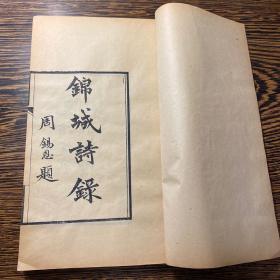 錦城詩錄
周錫恩題